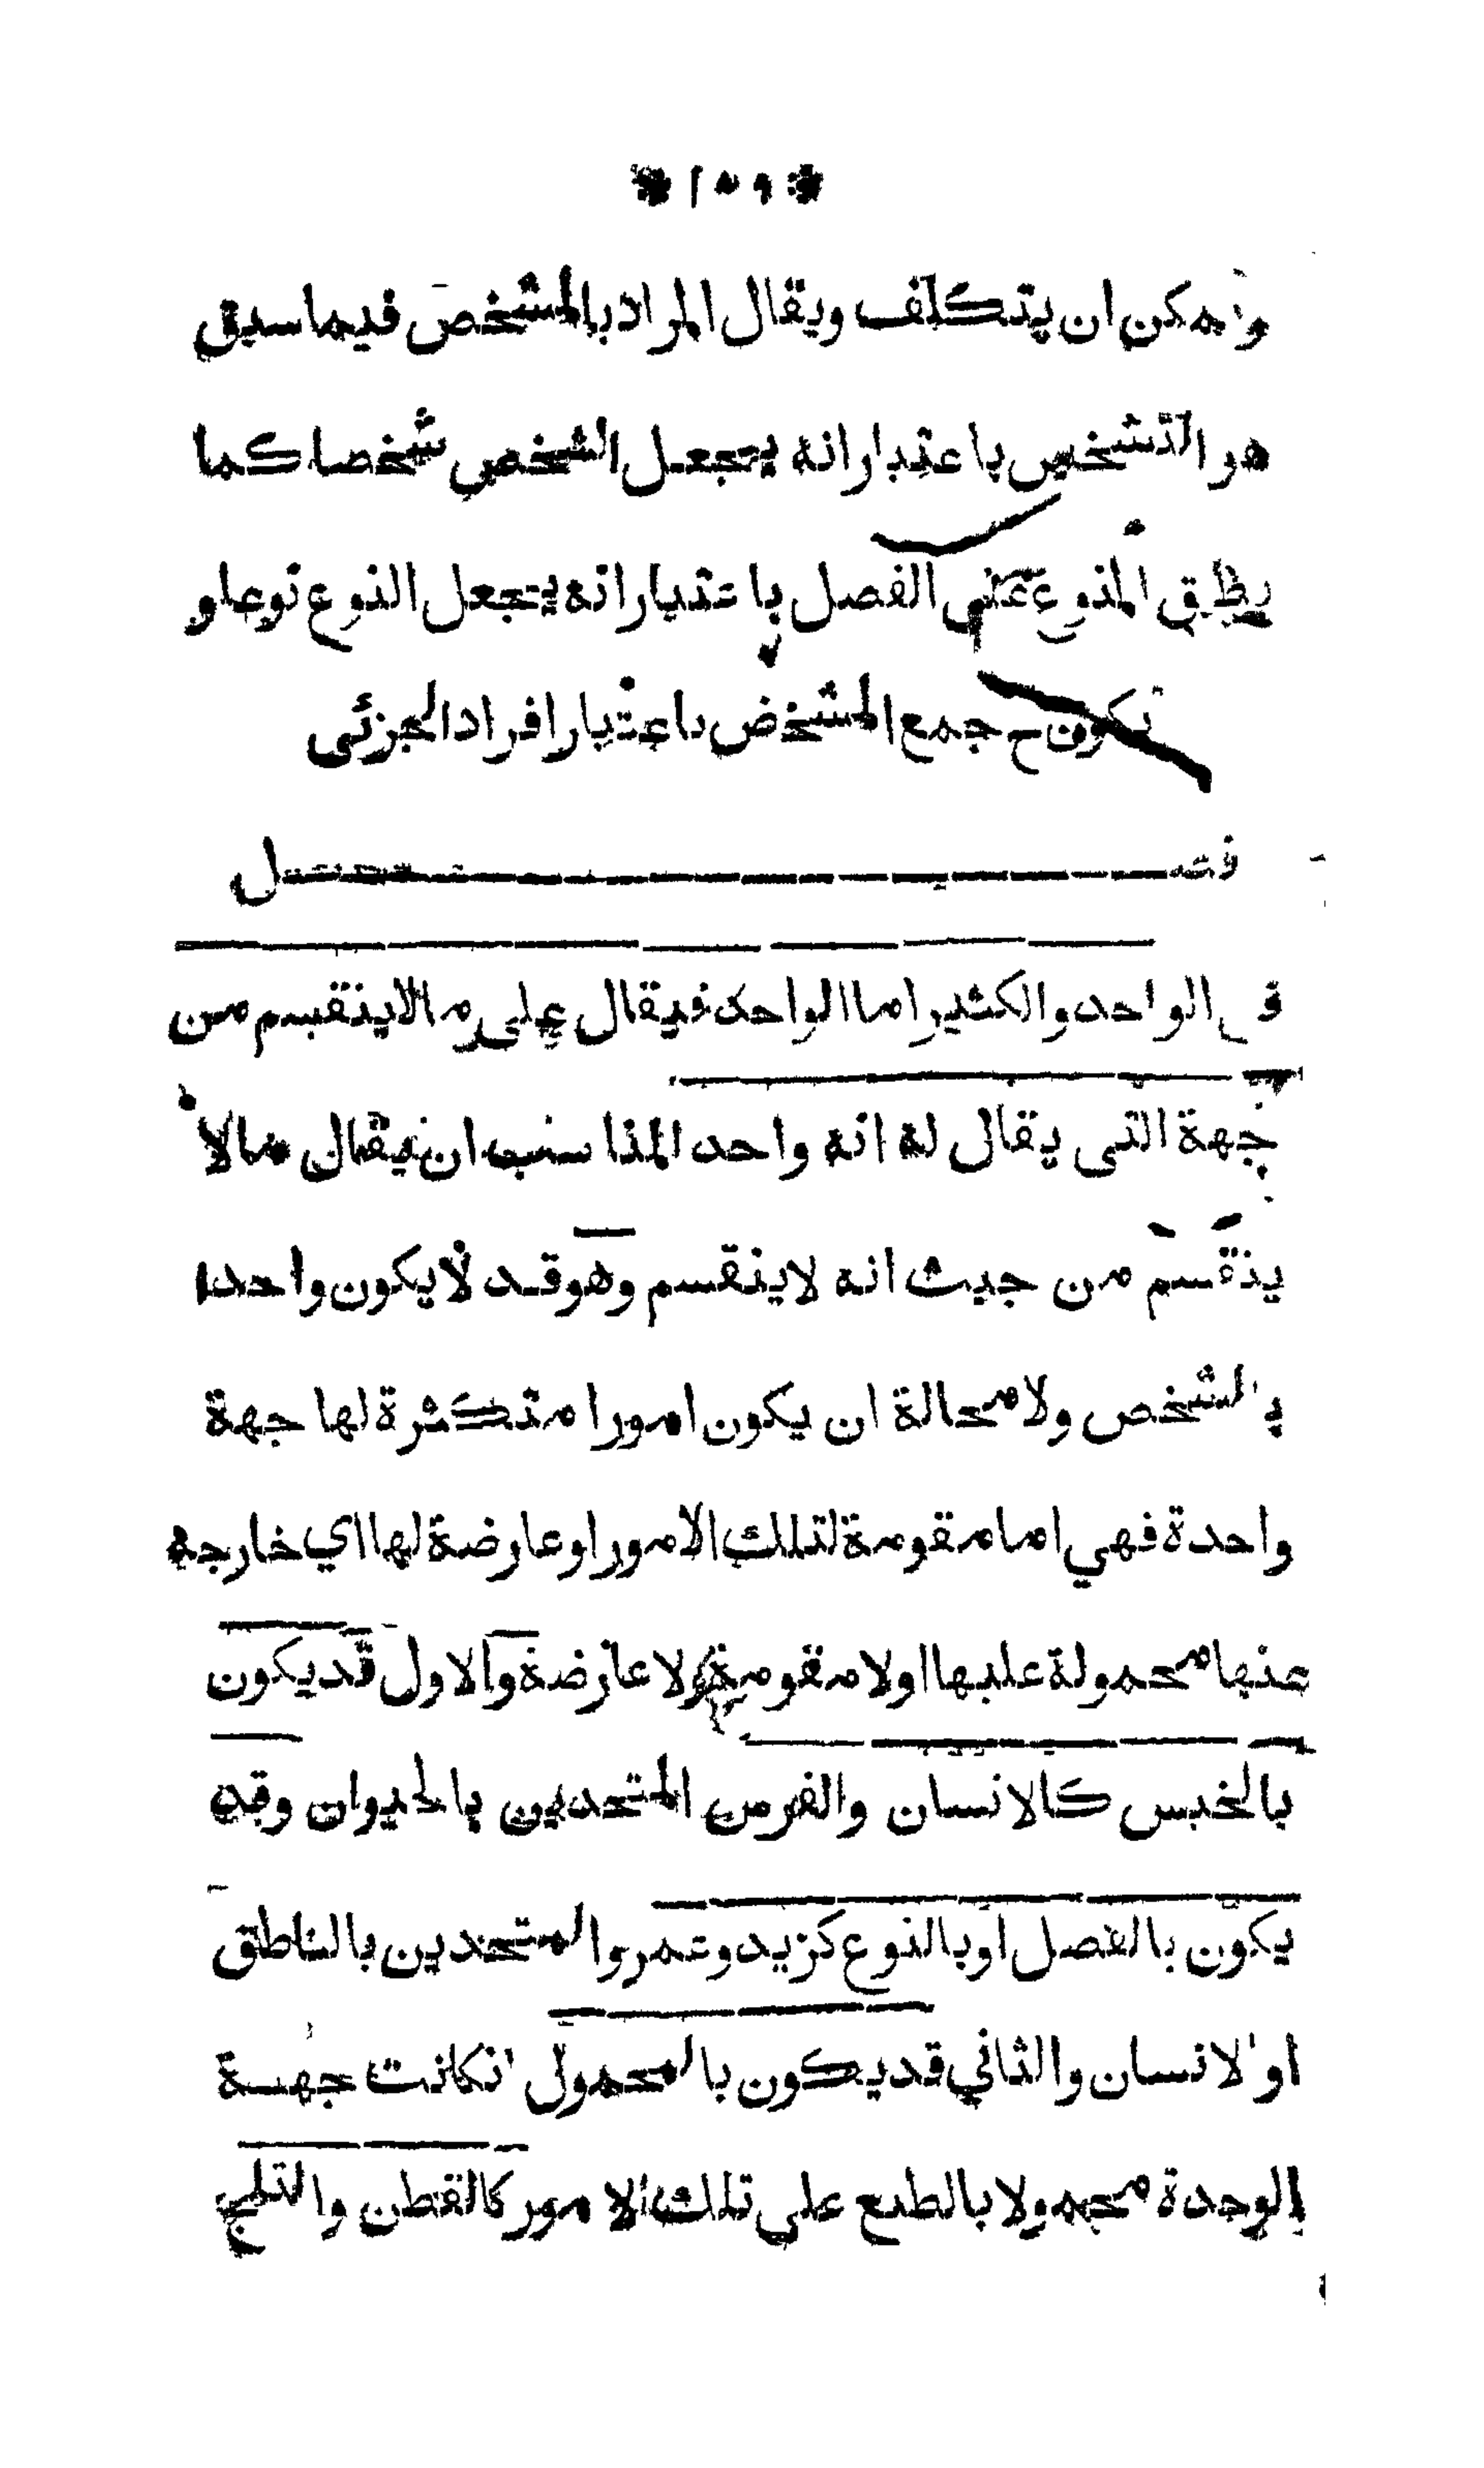 * ١٥٩ *
ويمكن ان يتكلف ويقال المراد بالمشخص فيما سبق
هو التشخص باعتبار انه يجعل الشخص شخصا كما
يطلق المنوع على الفصل باعتبار انه يجعل النوع نوعا و
يكون ح جمع المشخص باعتبار افراد الجزئى
فصل
فى الواحد والكثير اما الواحد فيقال على ما لاينقسم من
جهة التى يقال له انه واحد المناسب ان يقال ما لا
ينقسم من حيث انه لاينقسم وهو قد لايكون واحدا
بالشخص ولا محالة ان يكون امورا متكثرة لها جهة
واحدة فهي اما مقومة لتلك الامور او عارضة لها اي خارجه
عنها محمولة عليها او لا مقومة ولا عارضة والاول قد يكون
بالخبس كالانسان والفرس المتحدين بالحيوان وقد
يكون بالفصل او بالنوع كزيد وعمرو المتحدين بالناطق
او الانسان والثاني قد يكون بالمحمول انكانت جهة
الوحدة محمولا بالطبع على تلك الامور كالقطن والثلج